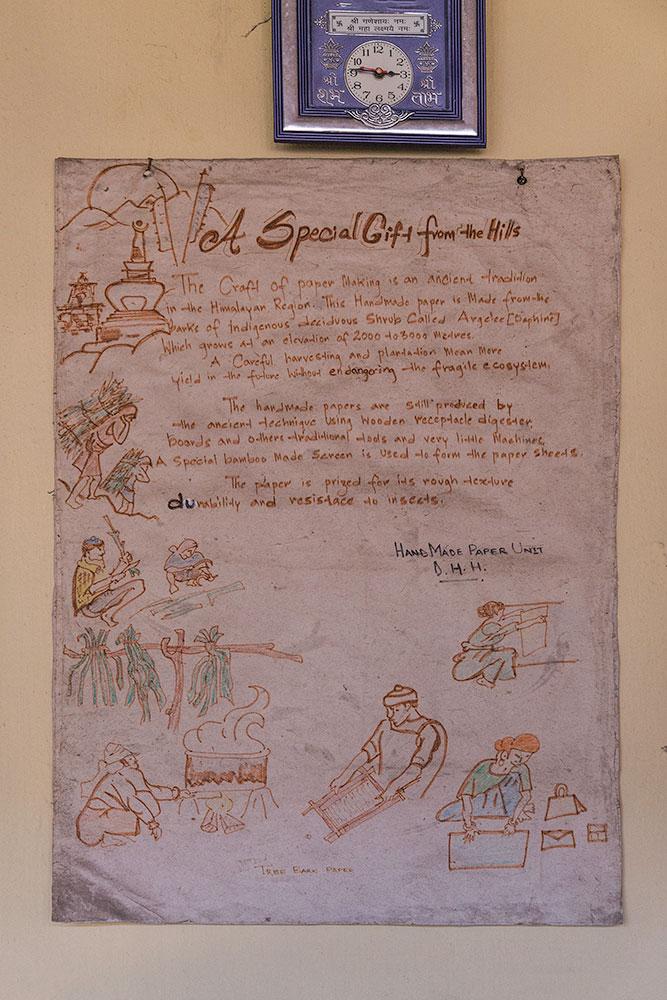 श्री गणेशाय: नम:
श्री महा लक्ष्मयै नम:
12
1
2
3
4
5
6
7
8
9
10
11
श्री
शुभ
श्री
लाभ
A Special Gift from the Hills
The Craft of paper Making is an ancient tradition
in the Himalayan Region. This Handmade paper is Made from the
barks of Indigenous deciduous Shrub Called Argelee [Daphine]
Which grows at an elevation of 2000 to 3000 metres.
A Careful harvesting and plantation Mean More
yield in the future without endangoring the fragile ecosystem.
The handmade papers are still produced by
the ancient technique using wooden receptacle digester,
boards and others traditional tools and very little Machines.
A Special bamboo Made Screen is used to form the paper sheets.
The paper is prized for its rough texture
durability and resistace to insects.
HAND MADE PAPER UNIT
D.H.H.
TREE BARK PAPER